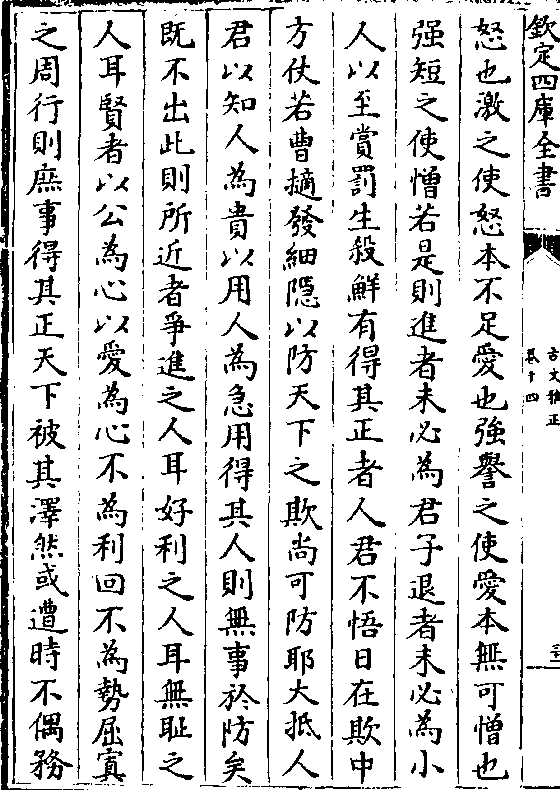 欽定四庫全書
古文雅正
卷十四
怒也激之使怒本不足愛也強譽之使愛本無可憎也
强短之使憎若是則進者未必為君子退者未必為小
人以至賞罰生殺鮮有得其正者人君不悟日在欺中
方仗若曹擿發細隱以防天下之欺尚可防耶大抵人
君以知人為貴以用人為急用得其人則無事於防矣
既不出此則所近者爭進之人耳好利之人耳無耻之
人耳賢者以公為心以愛為心不為利回不為勢屈寘
之周行則庶事得其正天下被其澤然或遭時不偶務